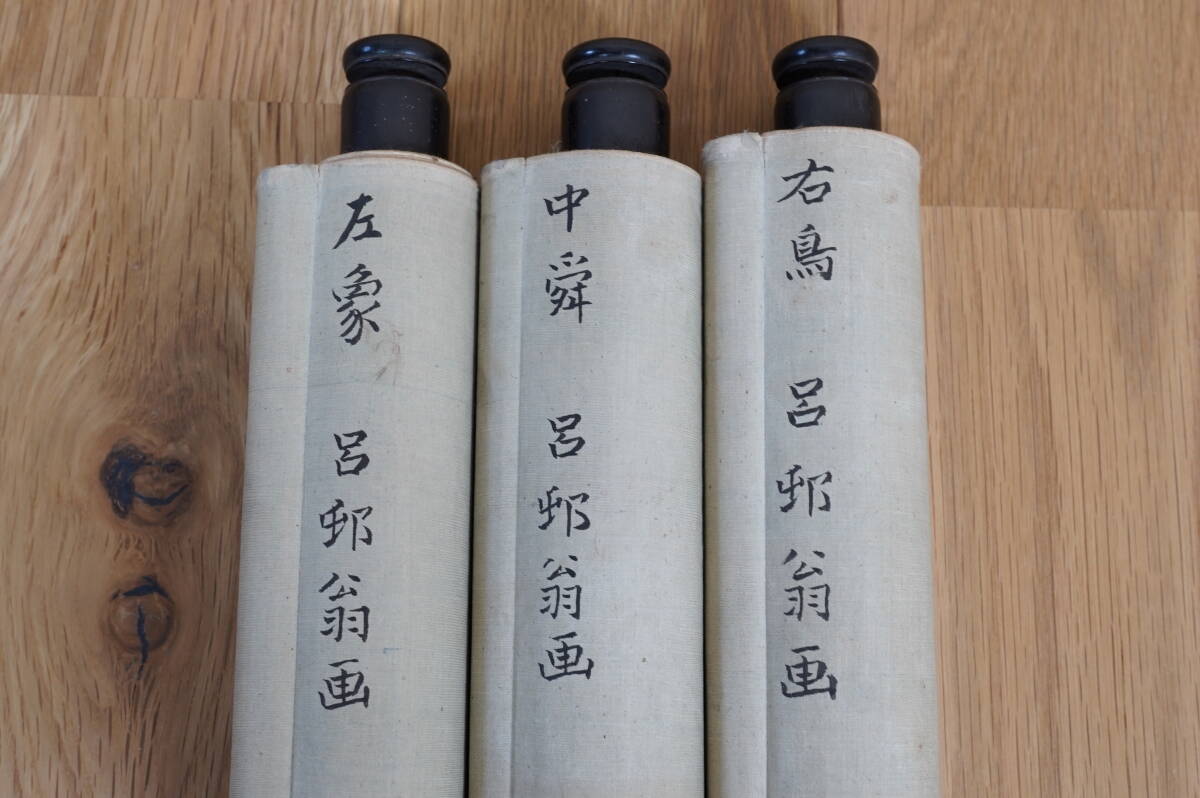 右鳥 呂邨翁画
中舜 呂邨翁画
左象 呂邨翁画